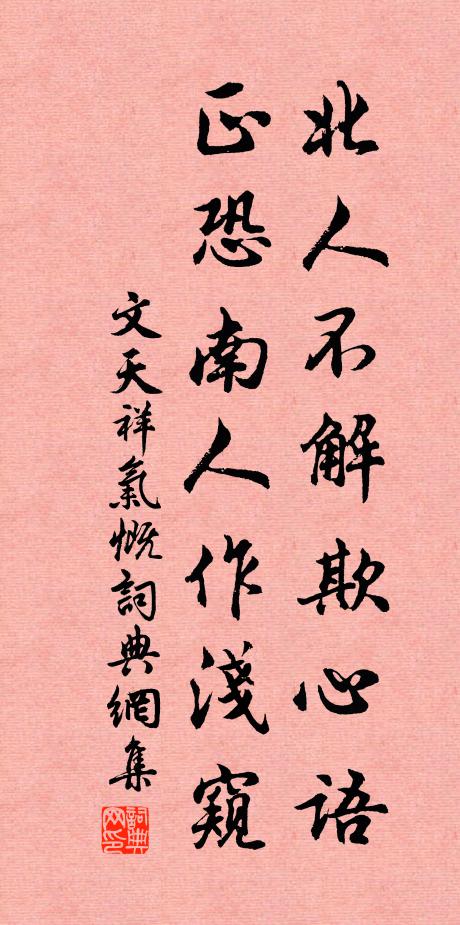 北人不解欺心語
正恐南人作淺窺
文天祥氣慨詞典網集
詞典網印